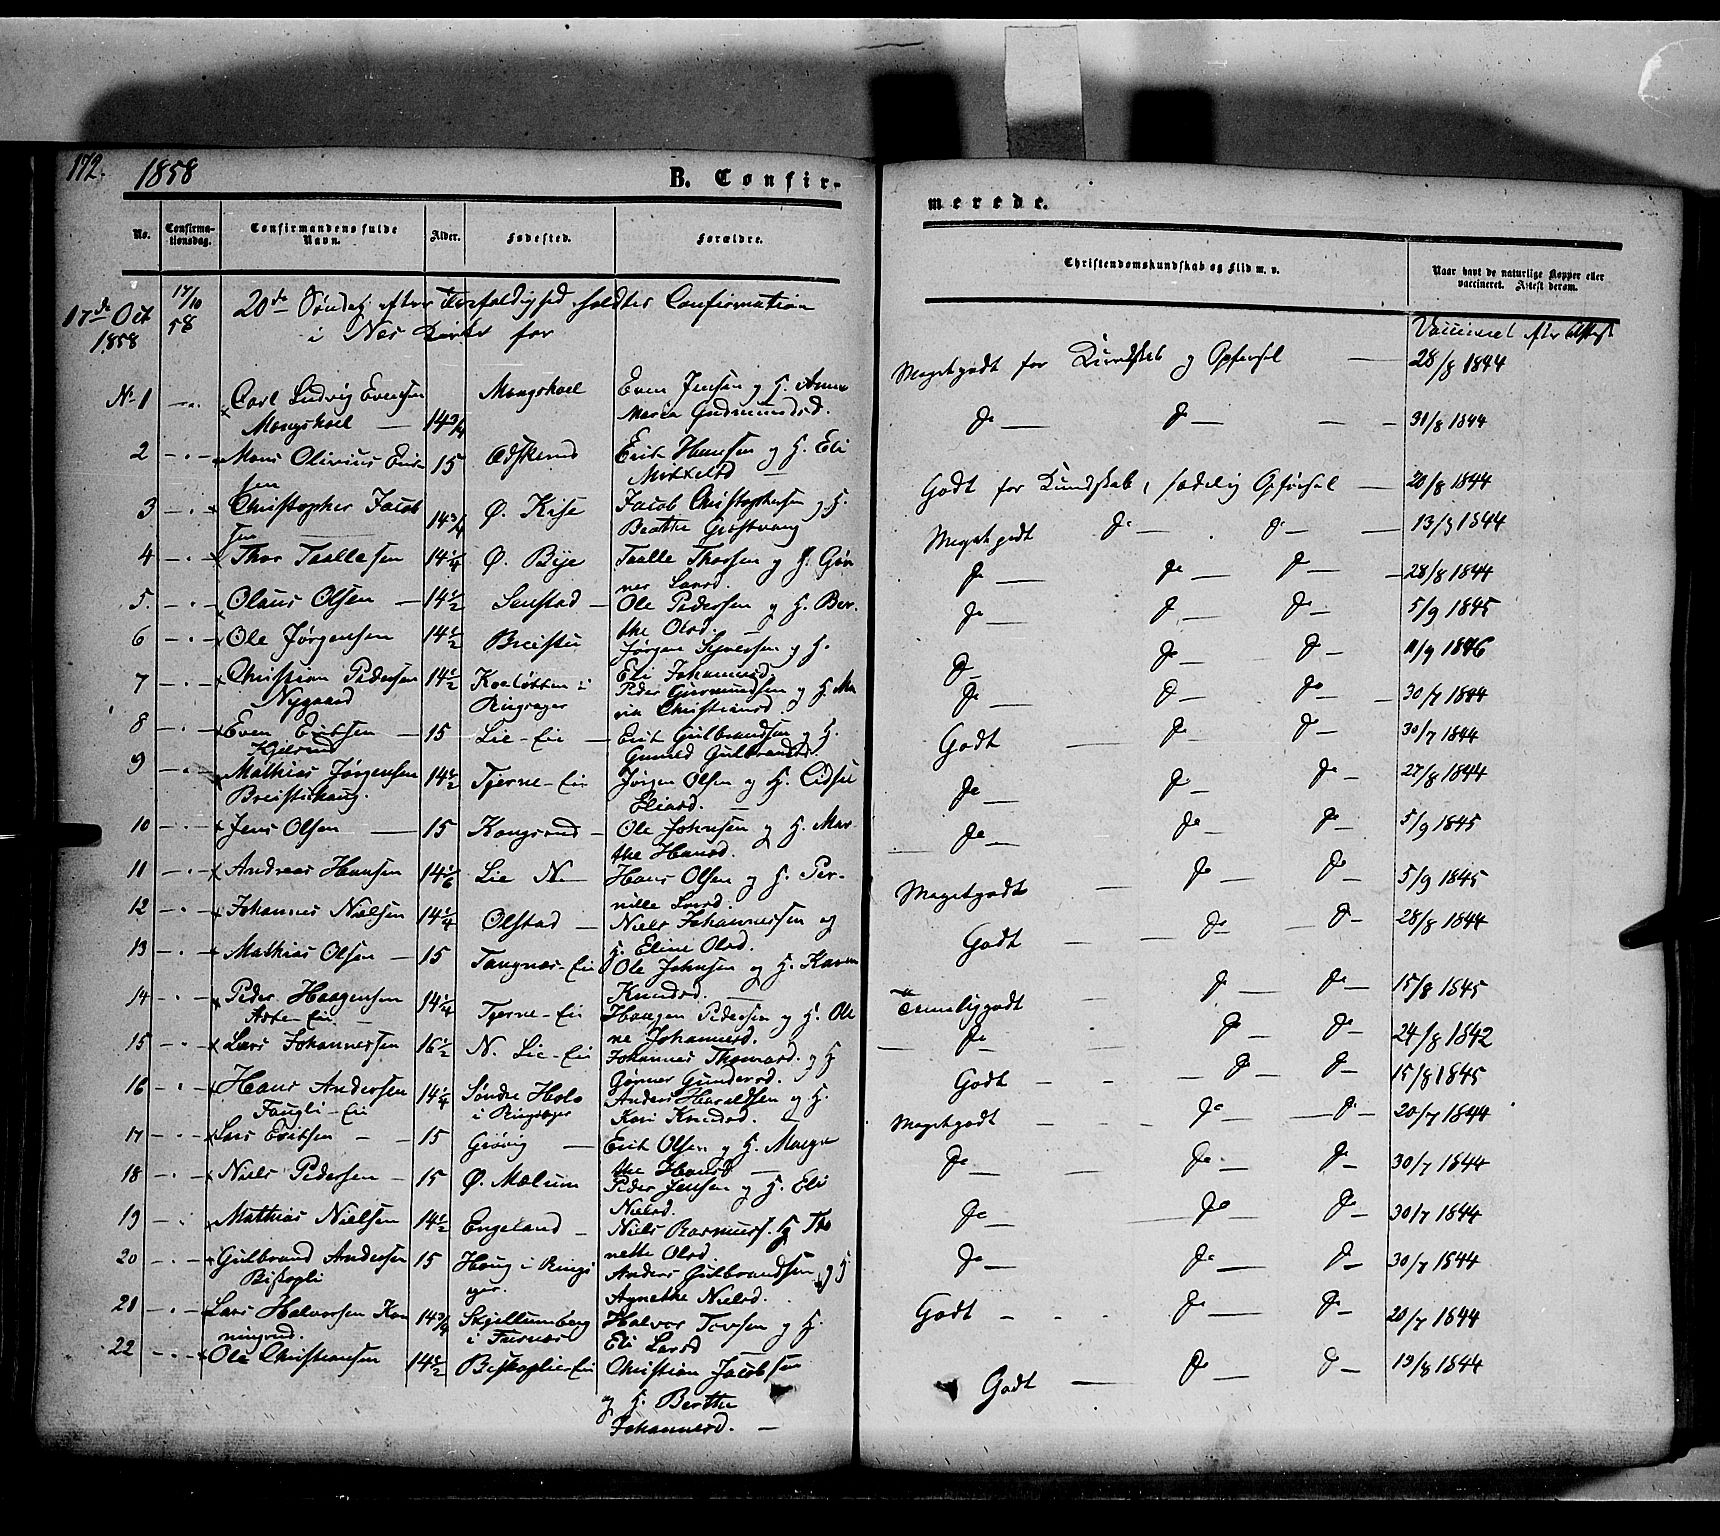 172. 1858
B. Confir-
merede.
No. Confirma-tionsdag. Confirmandens fulde Navn. Alder. Fødested. Forældre.
Christendomskundskab og Flid m. v. Naar havt de naturlige Kopper eller vaccineret. Attest derom.
17de Oct 1858 17/10 58 20de Søndag efter Trefoldighed holdtes Confirmation
i Nes Kirke for
Vaccineret efter Attest
No 1 Carl Ludvig Evensen Mengshoel 14 3/4 Mengshoel Even Jensen og H. Anne Maria Gudmundsd. Megetgodt for Kundskab og Opførsel 28/8 1844
2 Mons Olivius Eriksen 15 Erik Hansen og H. Eli Mikkelsd do do 31/8 1844
3 Christopher Jacobsen 14 3/4 Ø. Kise Jacob Christophersen og H. Berthe Godt for Kundskab, sædelig Opførsel 20/8 1844
4 Thor Taallesen 14 1/4 Ø. Bye Taalle Thorsen og H. Gønner Larsd. Megetgodt do do 13/9 1844
5. Olaus Olsen 14 1/2 Senstad Ole Pedersen og H. Berthe Olsd. do do do 28/8 1844
6 Ole Jørgensen 14 1/2 Breistu Jørgen Syversen og H. Eli Johannesd. do do do 5/9 1845
7 Christian Pedersen Nygaard 14 1/2 i Ringsager Peder Gudmundsen og H. Maria Christiansd do do do 11/9 1846
8 Even Eriksen 15 Lie-Eie Erik Gulbrandsen og H. Gunild Gulbrandsd do do do 30/7 1844
9 Mathias Jørgensen Breistuhaug. 14 1/2 Tjerne-Eie Jørgen Olsen og H. Eliasd. Godt do do 30/7 1844
10 Jens Olsen 15 Kongsrud Ole Johnsen og H. Marthe Hansd. do do do 27/8 1844
11 Andreas Hansen 14 1/6 Lie N. Hans Olsen og H. Pernille Larsd. do do do 5/9 1845
12 Johannes Nielsen 14 1/4 Olstad Niels Johannessen og H. Eline Olsd. Megetgodt do do 5/9 1845
13 Mathias Olsen 15 Tangnæs-Eie Ole Johnsen og H. Karen Knudsd. Godt do do 28/8 1844
14 Peder Haagensen 14 1/4 Tjerne-Eie Haagen Pedersen og H. Oline Johannesd. Temeliggodt do do 15/8 1845
15 Lars Johannessen 16 1/2 N. Lie-Eie Johannes Thomasd. og H Gønner Gundersd. do do do 24/8 1842
16 Hans Andersen Taugli-Eie 14 1/4 Søndre i Ringsager Anders Haraldsen og H. Kari Knudsd. Godt do do 15/8 1845
17 Lars Eriksen 15 Grøvig Erik Olsen og H. Margrethe Hansd Megetgodt do do 20/7 1844
18 Niels Pedersen 15 Ø. Mælum Peder Jensen og H. Eli Nielsd. do do do 30/7 1844
19 Mathias Nielsen 14 1/2 Engeland Niels Rasmuss. H Thonette Olsd. do do do 30/7 1844
20 Gulbrand Andersen Biskopli 15 Haug i Ringsager. Anders Gulbrandsen og H Agnethe Nielsd. do do do 30/7 1844
21 Lars Halvorsen Konningrud. 14 3/4 Skjellumberg i Furnæs Halvor Iversen og H. Eli Larsd Godt do do 20/7 1844
22 Ole Christiansen 14 1/2 Biskoplie-Eie Christian Jacobsen og H. Berthe Johannesd. Godt do do 19/8 1844